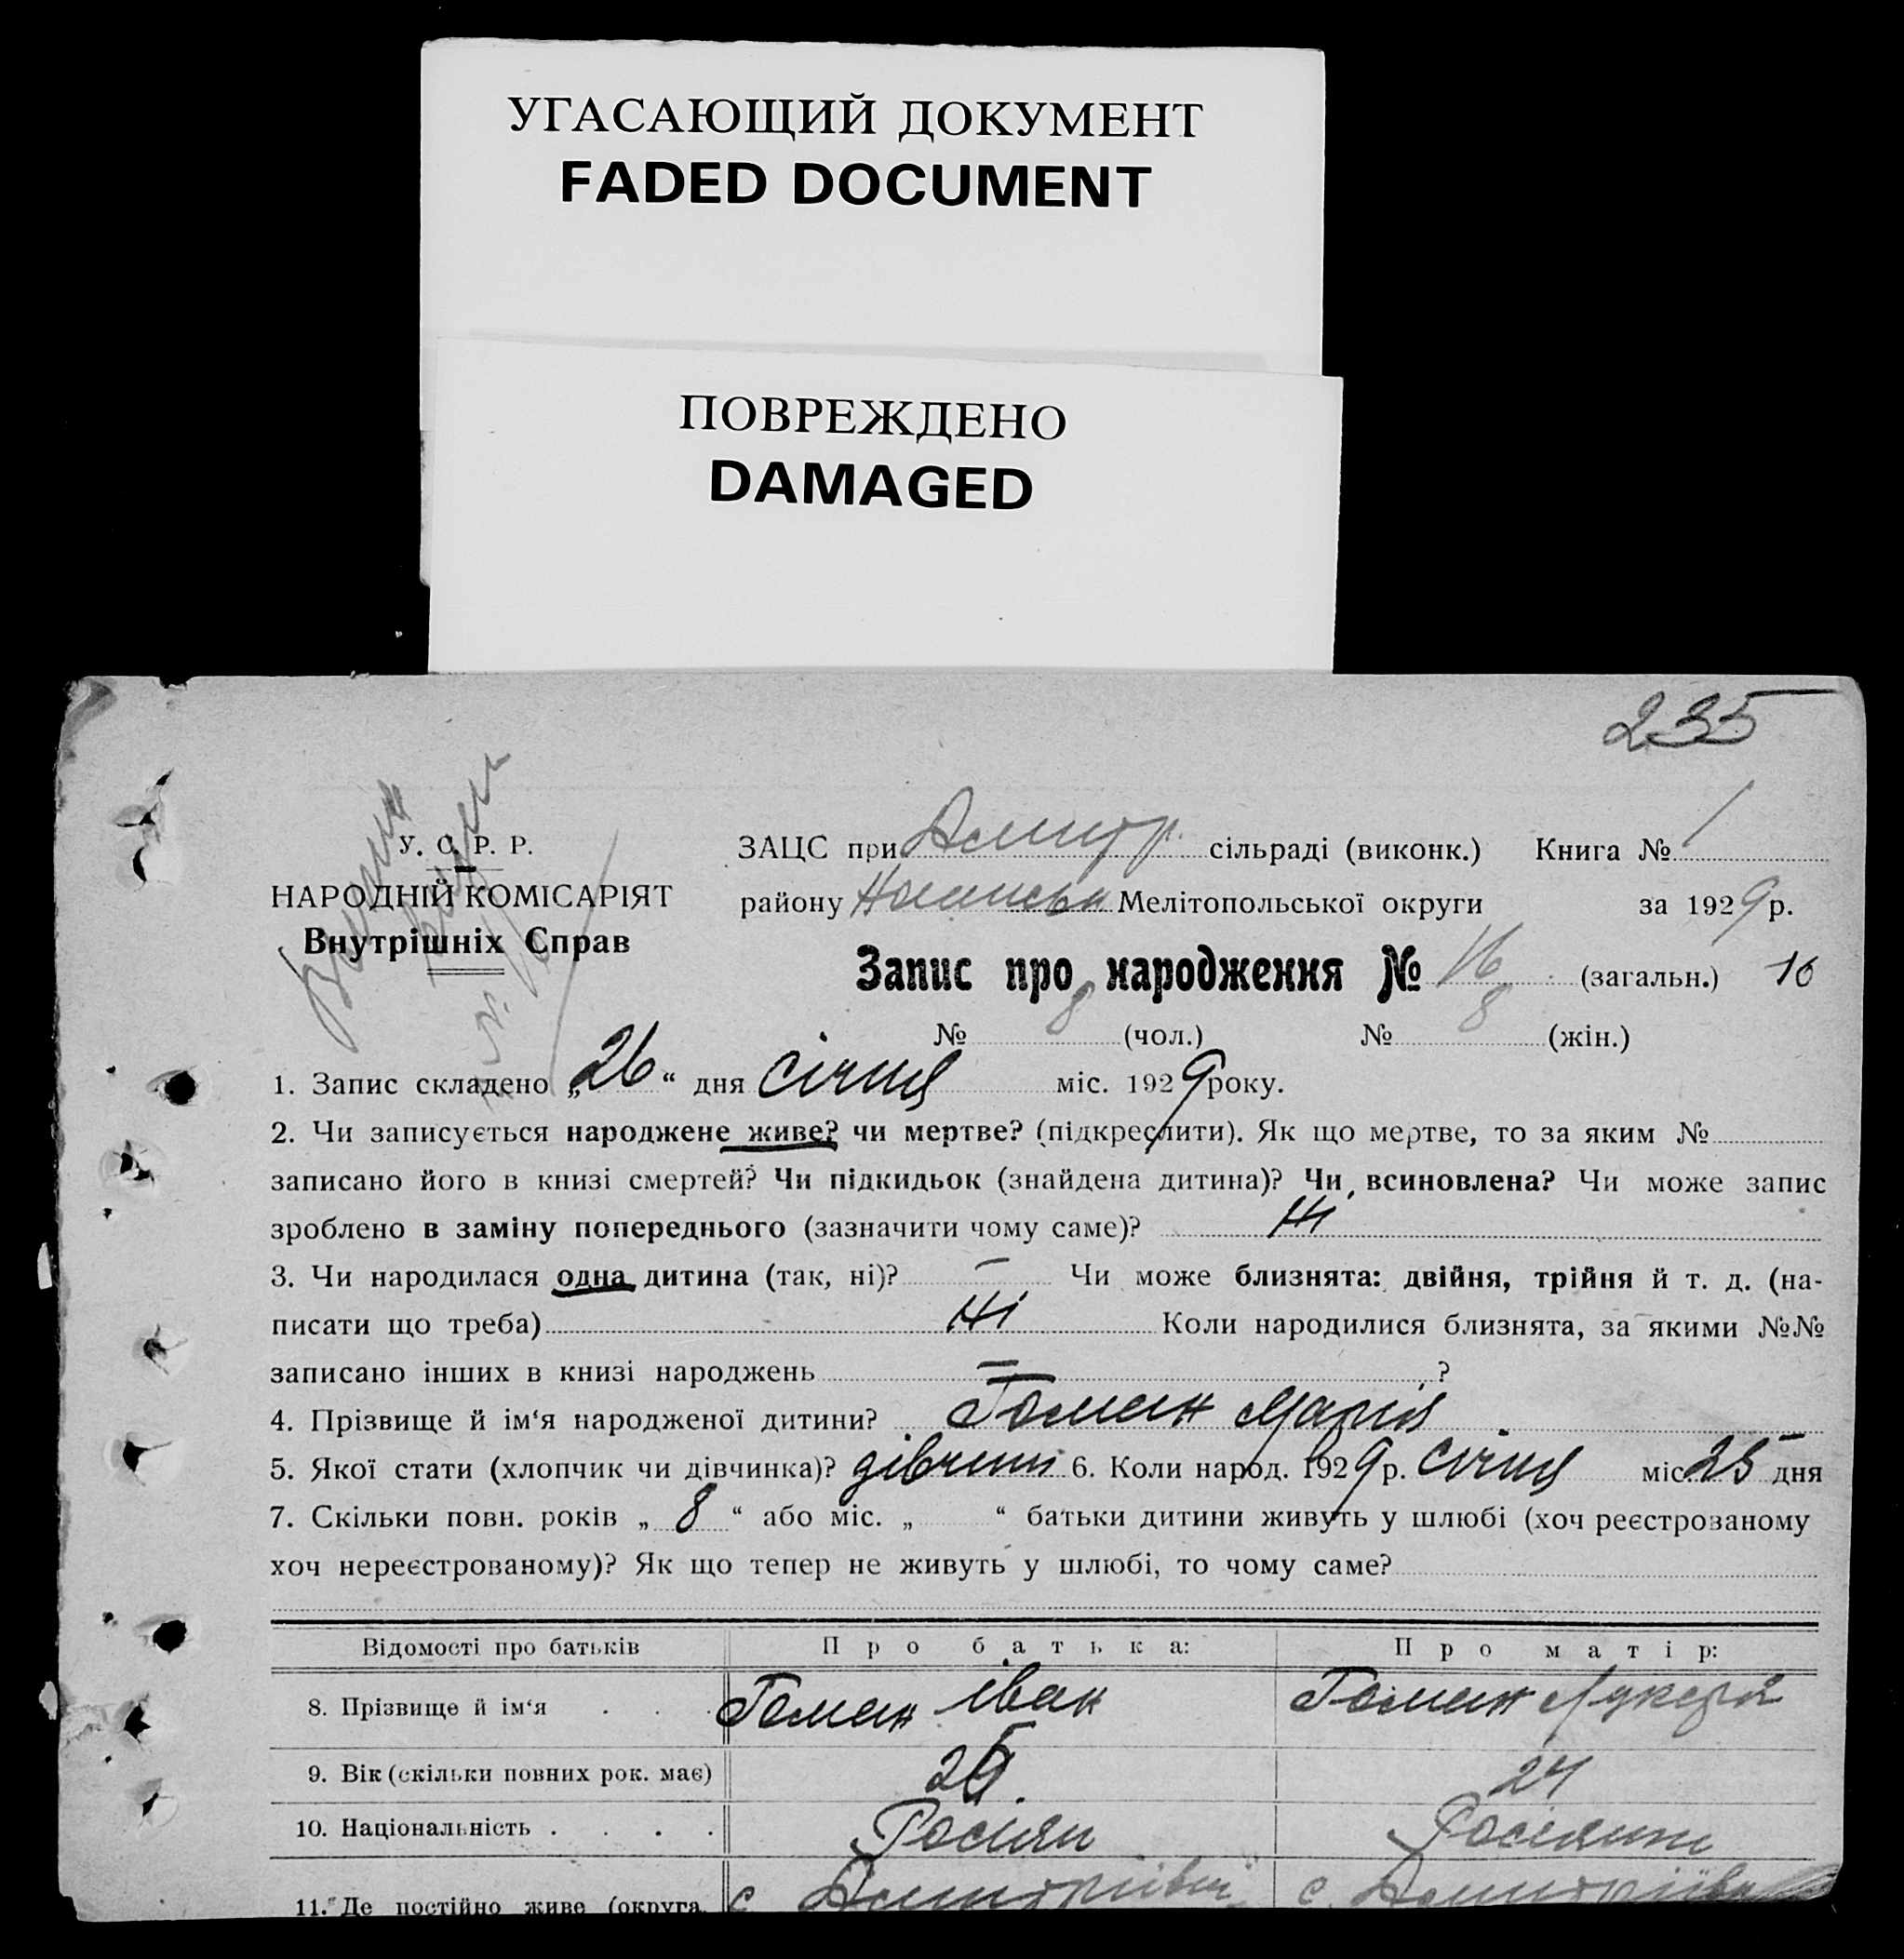 УГАСАЮЩИЙ ДОКУМЕНТ
FADED DOCUMENT
ПОВРЕЖДЕНО
DAMAGED
235
У. С. Р. Р.
НАРОДНІЙ КОМІСАРІЯТ
Внутрішніх Справ
ЗАЦС при Дмитр. сільраді (виконк.) Книга № 1
району Мелітопольської округи за 1929 р.
Запис про народження № 16 (загальн.) 16
№ 8 (чол.) № 8 (жін.)
1. Запис складено „ 26 “ дня січня міс. 1929 року.
2. Чи записується народжене живе? чи мертве? (підкреслити). Як що мертве, то за яким №
записано його в книзі смертей? Чи підкидьок (знайдена дитина)? Чи всиновлена? Чи може запис
зроблено в заміну попереднього (зазначити чому саме)? Ні
3. Чи народилася одна дитина (так, ні)? — Чи може близнята: двійня, трійня й т. д. (на-
писати що треба) Ні Коли народилися близнята, за якими №№
записано інших в книзі народжень — ?
4. Прізвище й ім‘я народженої дитини? Гоман Марія
5. Якої стати (хлопчик чи дівчинка)? дівчин 6. Коли народ. 1929 р. січня міс. 25 дня
7. Скільки повн. років „ 8 “ або міс. „ “ батьки дитини живуть у шлюбі (хоч реєстрованому
хоч нереєстрованому)? Як що тепер не живуть у шлюбі, то чому саме?
Відомості про батьків Про батька: Про матір:
8. Прізвище й ім‘я . . . Гоман Іван Гоман Лукерія
9. Вік (скільки повних рок. має) 24
10. Національність . . . . Росіян Росіянка
11. Де постійно живе (округа, с Дмитрівка с. Дмитріївка